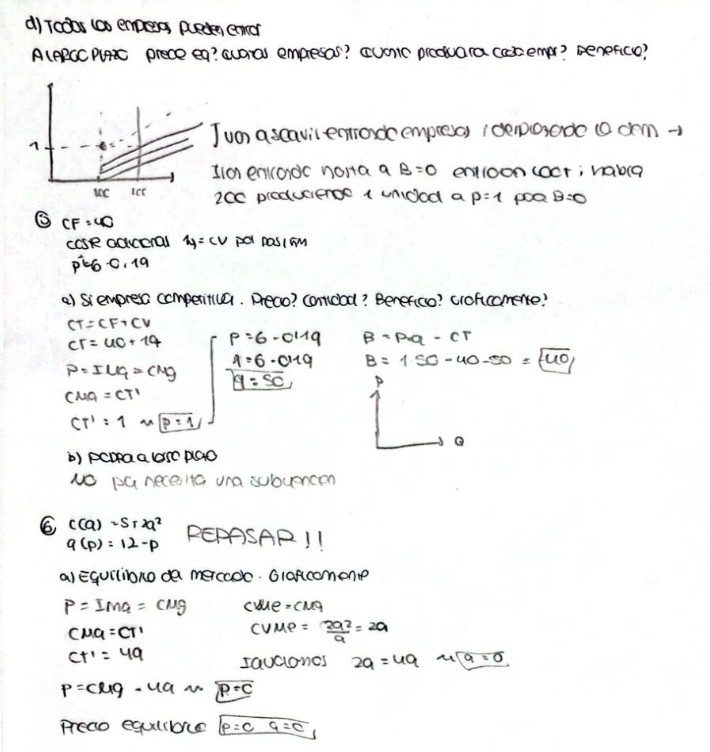 d) Todas las empresas pueden entrar
A LARGO PLAZO precio eq? cuantas empresas? cuanto producira cada empr? Beneficio?
1
100
Iran entrando hasta q B=0 entraran 100 + i habra
200 produciendo 1 unidad a p=1 B=0
⑤ CF=40
coste adicional 1q=CV
p=6-0.1q
a) Si empresa competitiva. Precio? Cantidad? Beneficio? Graficamente?
CT=CF+CV
CT=40+1q
P=IMg=CMg
CMg=CT'
CT'=1 p=1
P=6-0'1q
1=6-0'1q
q=50
B=P·q-CT
B=1·50-40-50=40
P
Q
b) podra a largo plazo
NO necesita una subvencion
⑥ C(q)=5+2q²
q(p)=12-p
REPASAR!!
a) Equilibrio de mercado. Graficamente
P=IMg=CMg
CMg=CT'
CT'=4q
CVMe=CMg
CVMe=2q²/q=2q
Igualamos 2q=4q q=0
P=CMg=4q p=0
Precio equilibrio p=0 q=0